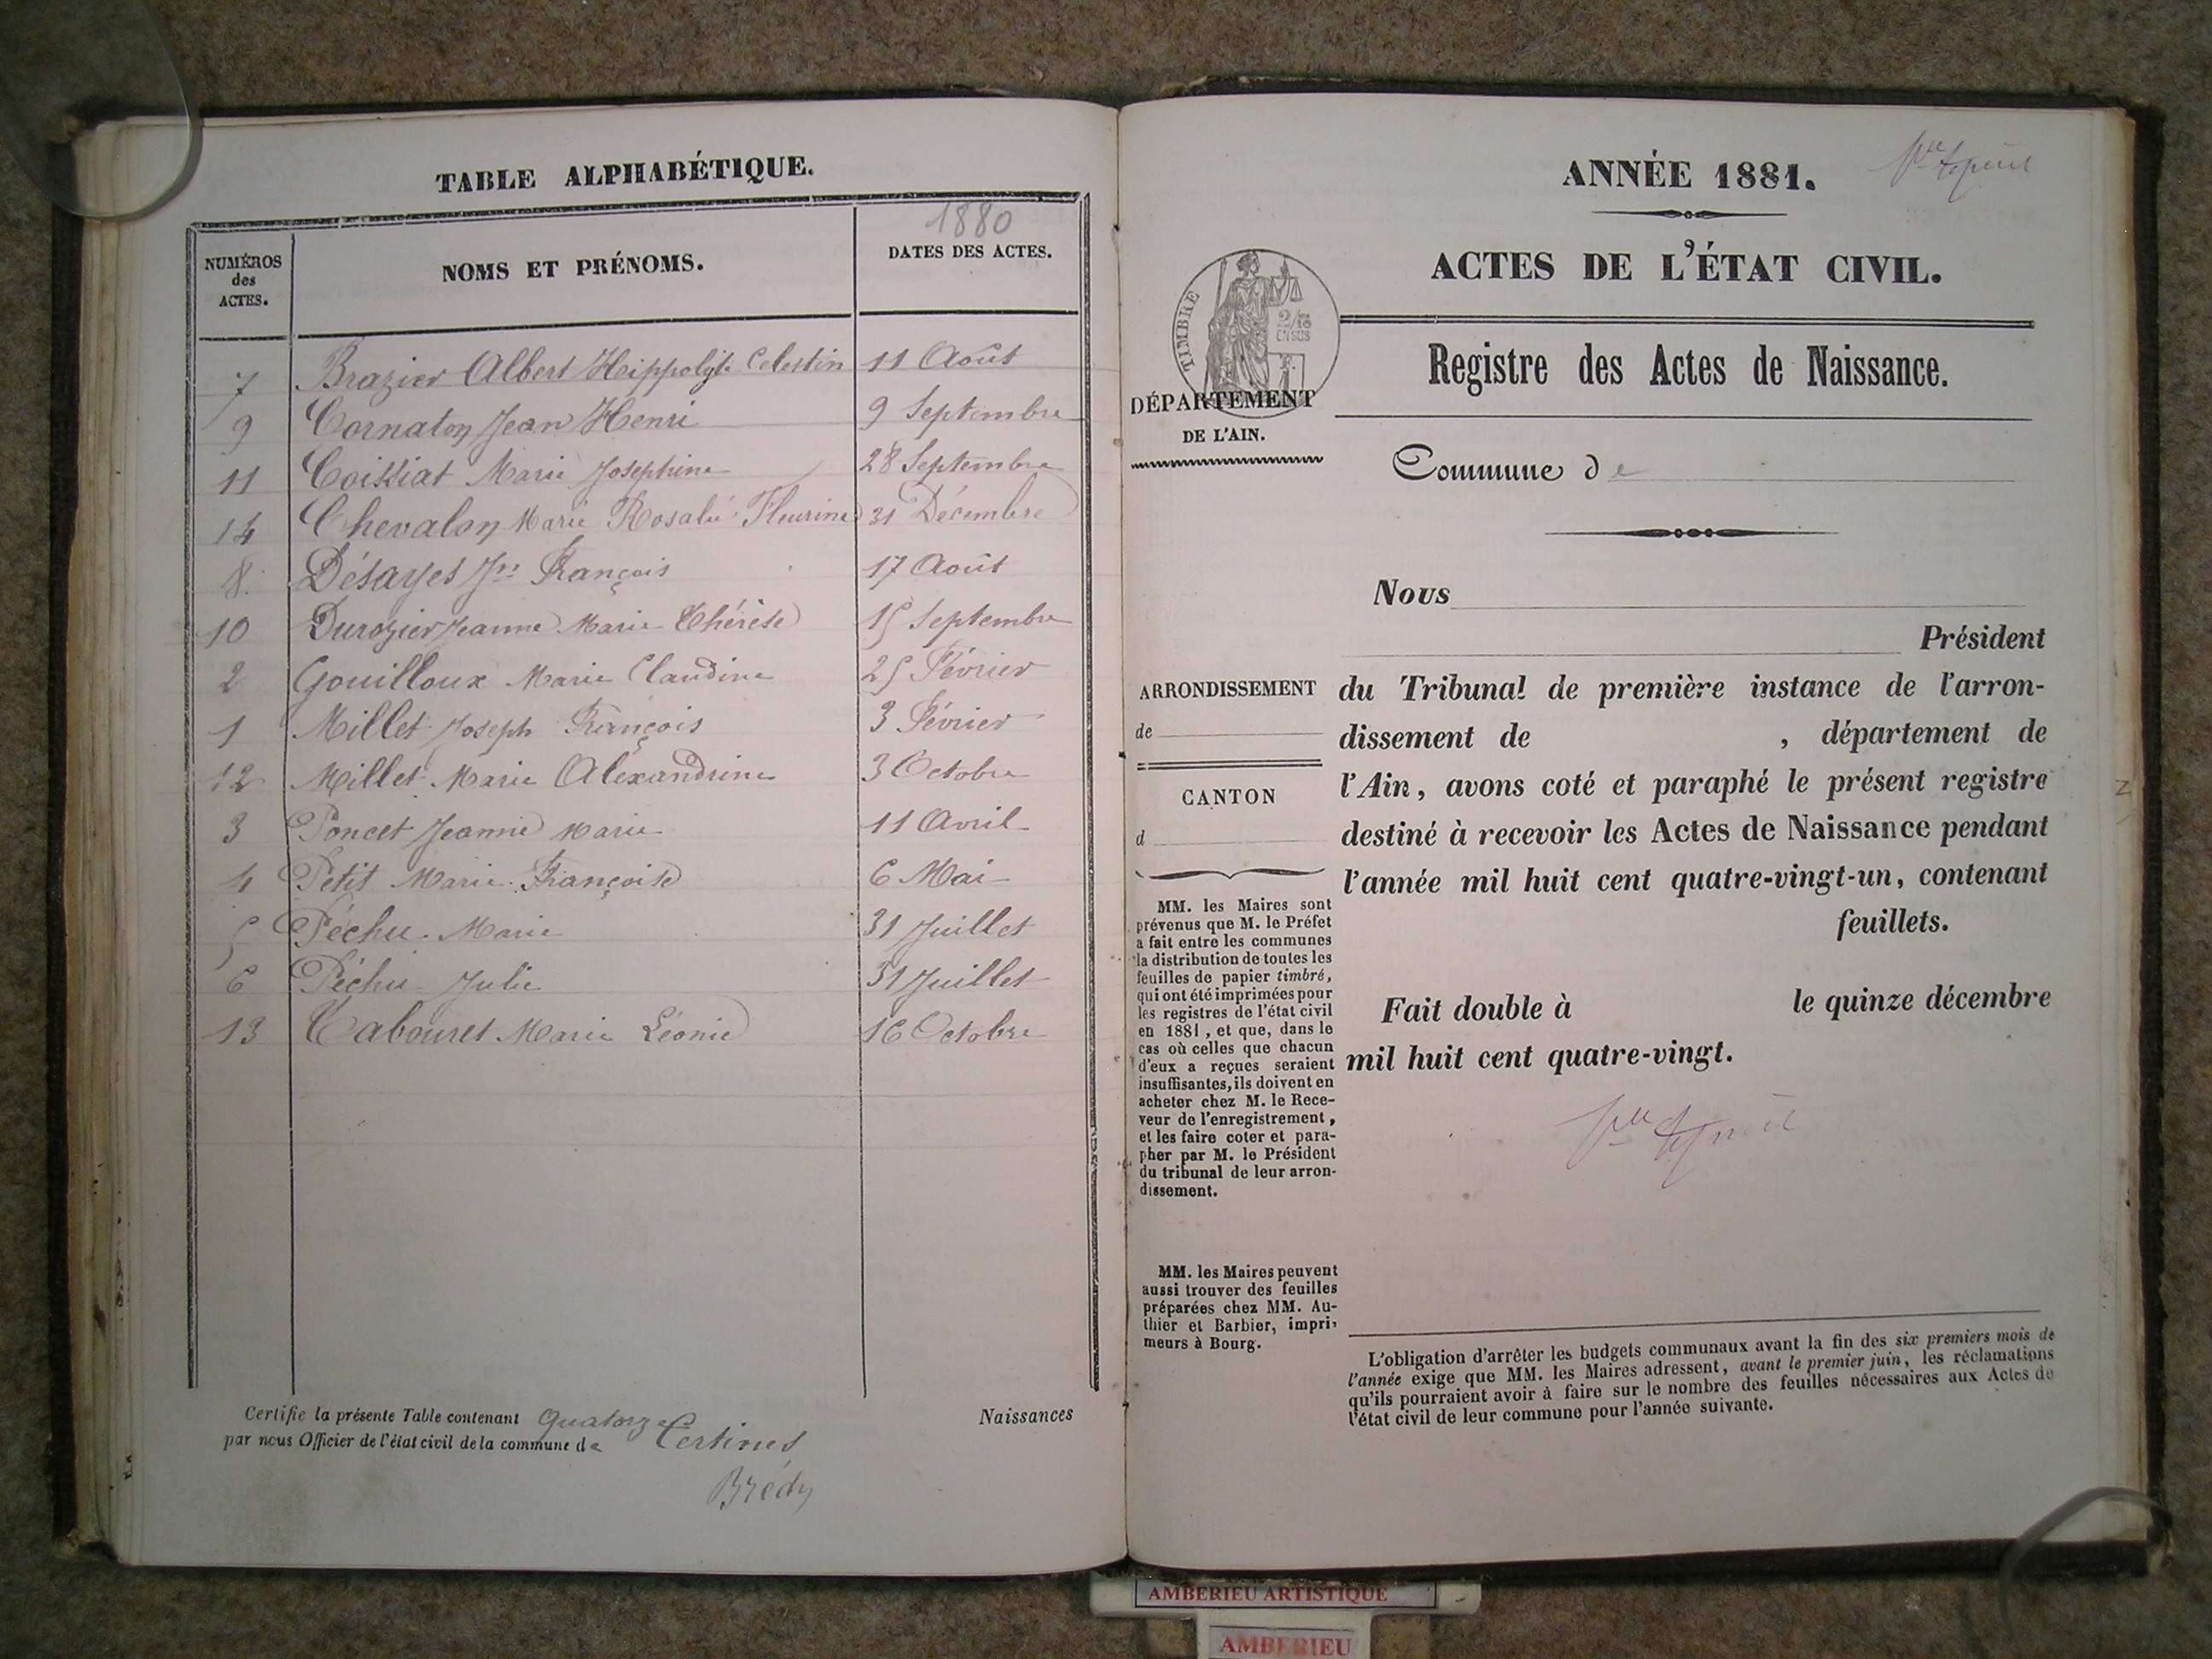 TABLE ALPHABÉTIQUE.
1880
NUMÉROS des ACTES. NOMS ET PRÉNOMS. DATES DES ACTES.
7 Brazier Albert Hippolyte Celestin 11 Août
9 Cornaton Jean Henri 9 Septembre
11 Coissiat Marie Josephine 28 Septembre
14 Chevalon Marie Rosalie Fleurine 31 Décembre
8 Désayes Jn François 17 Août
10 Durozier Jeanne Marie Thérèse 15 Septembre
2 Gouilloux Marie Claudine 25 Février
1 Millet Joseph François 3 Février
12 Millet Marie Aléxandrine 3 Octobre
3 Poncet Jeanne Marie 11 Avril
4 Petit Marie Françoise 6 Mai
5 Péchu Marie 31 Juillet
6 Péchu Julie 31 Juillet
13 Tabouret Marie Léonie 16 Octobre
Certifie la présente Table contenant Quatorze Naissances
par nous Officier de l'état civil de la commune de Certines
Brédy
ANNÉE 1881.
ACTES DE L'ÉTAT CIVIL.
TIMBRE
2/10
EN SUS
Registre des Actes de Naissance.
DÉPARTEMENT
DE L'AIN.
Commune de
Nous
Président
ARRONDISSEMENT
de
CANTON
d
du Tribunal de première instance de l'arron-
dissement de , département de
l'Ain, avons coté et paraphé le présent registre
destiné à recevoir les Actes de Naissance pendant
l'année mil huit cent quatre-vingt-un, contenant
feuillets.
Fait double à le quinze décembre
mil huit cent quatre-vingt.
MM. les Maires sont
prévenus que M. le Préfet
a fait entre les communes
la distribution de toutes les
feuilles de papier timbré,
qui ont été imprimées pour
les registres de l'état civil
en 1881, et que, dans le
cas où celles que chacun
d'eux a reçues seraient
insuffisantes, ils doivent en
acheter chez M. le Rece-
veur de l'enregistrement,
et les faire coter et para-
pher par M. le Président
du tribunal de leur arron-
dissement.
MM. les Maires peuvent
aussi trouver des feuilles
préparées chez MM. Au-
thier et Barbier, impri-
meurs à Bourg.
L'obligation d'arrêter les budgets communaux avant la fin des six premiers mois de
l'année exige que MM. les Maires adressent, avant le premier juin, les réclamations
qu'ils pourraient avoir à faire sur le nombre des feuilles nécessaires aux Actes de
l'état civil de leur commune pour l'année suivante.
AMBERIEU ARTISTIQUE
AMBERIEU